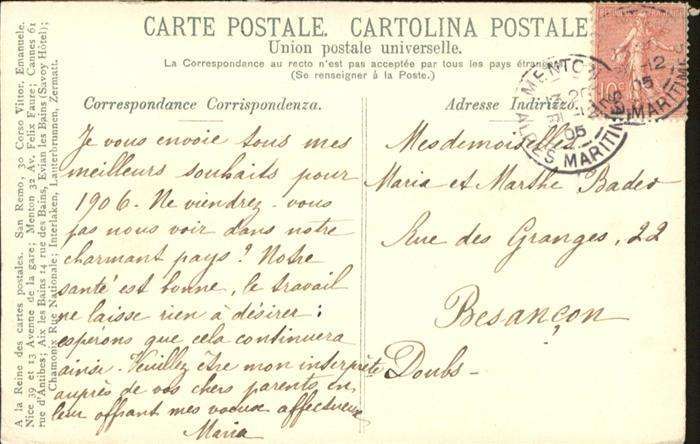 CARTE POSTALE. CARTOLINA POSTALE.
Union postale universelle.
La Correspondance au recto n'est pas acceptée par tous les pays étran
(Se renseigner à la Poste.)
MENTON
20
12
05
ALPES MARITIM
12
05
MARITIMES
10
Correspondance Corrispondenza.
Adresse Indirizzo.
Je vous envoie tous mes
meilleurs souhaits pour
1906. Ne viendrez-vous
pas nous voir dans notre
charmant pays? Notre
santé est bonne, le travail
ne laisse rien à désirer;
espérons que cela continuera
ainsi. Veuillez être mon interprète
auprès de vos chers parents en
leur offrant mes vœux affectueux
Maria
Mesdemoiselles
Maria et Marthe Bader
Rue des Granges, 22
Besançon
Doubs-
A la Reine des cartes postales. San Remo, 30 Corso Vittor. Emanuele.
Nice 39 et 13 Avenne de la gare; Menton 32 Av. Felix Faure; Cannes 61
rue d'Antibes; Aix les Bains 14 rue des Bains, Evian les Bains (Savoy Hôtel);
Chamonix Rue Nationale; Interlaken, Lauterbrunnen, Zermatt.